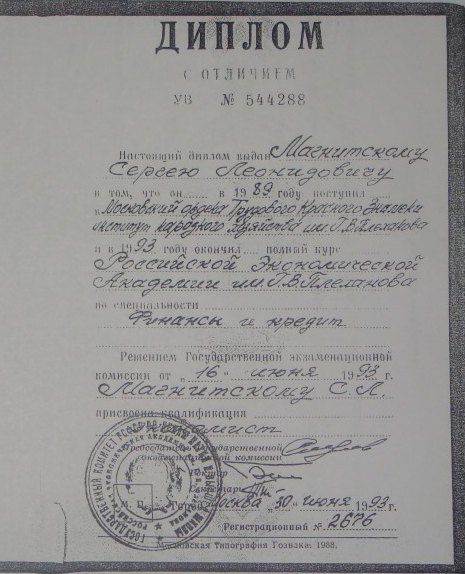 ДИПЛОМ
С ОТЛИЧИЕМ
УВ № 544288
Настоящий диплом выдан Магнитскому
Сергею Леонидовичу
в том, что он в 1989 году поступил
в Московский ордена Трудового Красного Знамени
институт народного хозяйства им. Г.В. Плеханова
и в 1993 году окончил полный курс
Российской Экономической
Академии им. Г.В. Плеханова
по специальности
Финансы и кредит
Решением Государственной экзаменационной
комиссии от „16“ июня 1993 г.
Магнитскому С.Л.
присвоена квалификация
экономист
Председатель Государственной
экзаменационной комиссии
Ректор
Секретарь
М. П. Город Москва „30“ июня 1993 г.
Регистрационный № 2676
Московская типография Гознака. 1988.